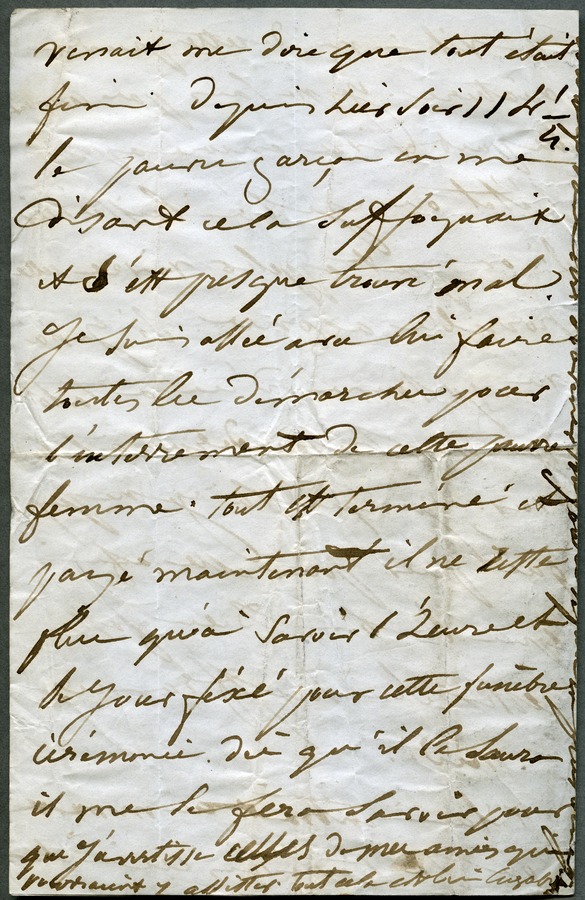 venait me dire que tout était
fini depuis hier soir 11 h 1/4.
le pauvre garçon en me
disant cela suffoquait
et s'ett presque trouvé mal
Je suis allé avec lui faire
toutes les démarches pour
l'enterrement de cette pauvre
femme. tout est terminé et
payé maintenant il ne reste
plus qu'à savoir l'heure et
le jour fixé pour cette funèbre
cérémonie. dès qu'il le saura
il me le fera savoir pour
que j'avertisse celles de mes amies qui
voudraient y assister tout cela est bien